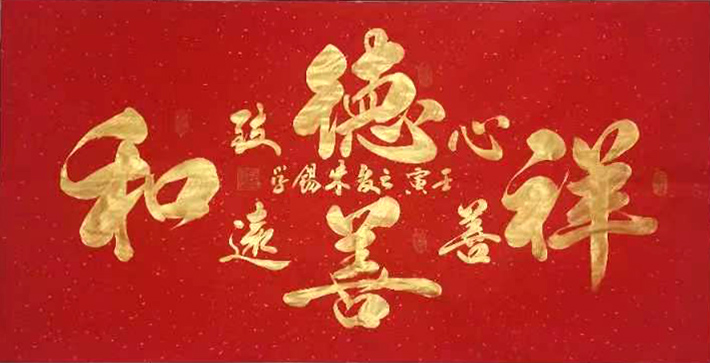 祥
心善
德
壬寅之夏朱錫
善
致遠
和